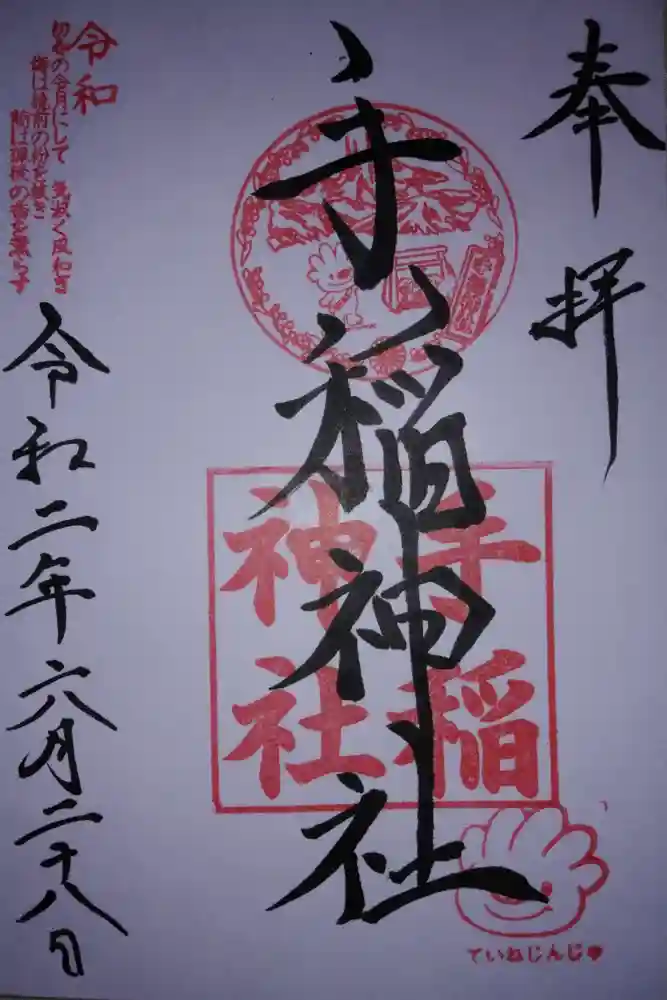 奉拝
手稲神社
手稲
神社
ていねじんじ
令和
初春の令月にして 気淑く風和ぎ
梅は鏡前の粉を披き
蘭は珮後の香を薫らす
令和二年六月二十八日